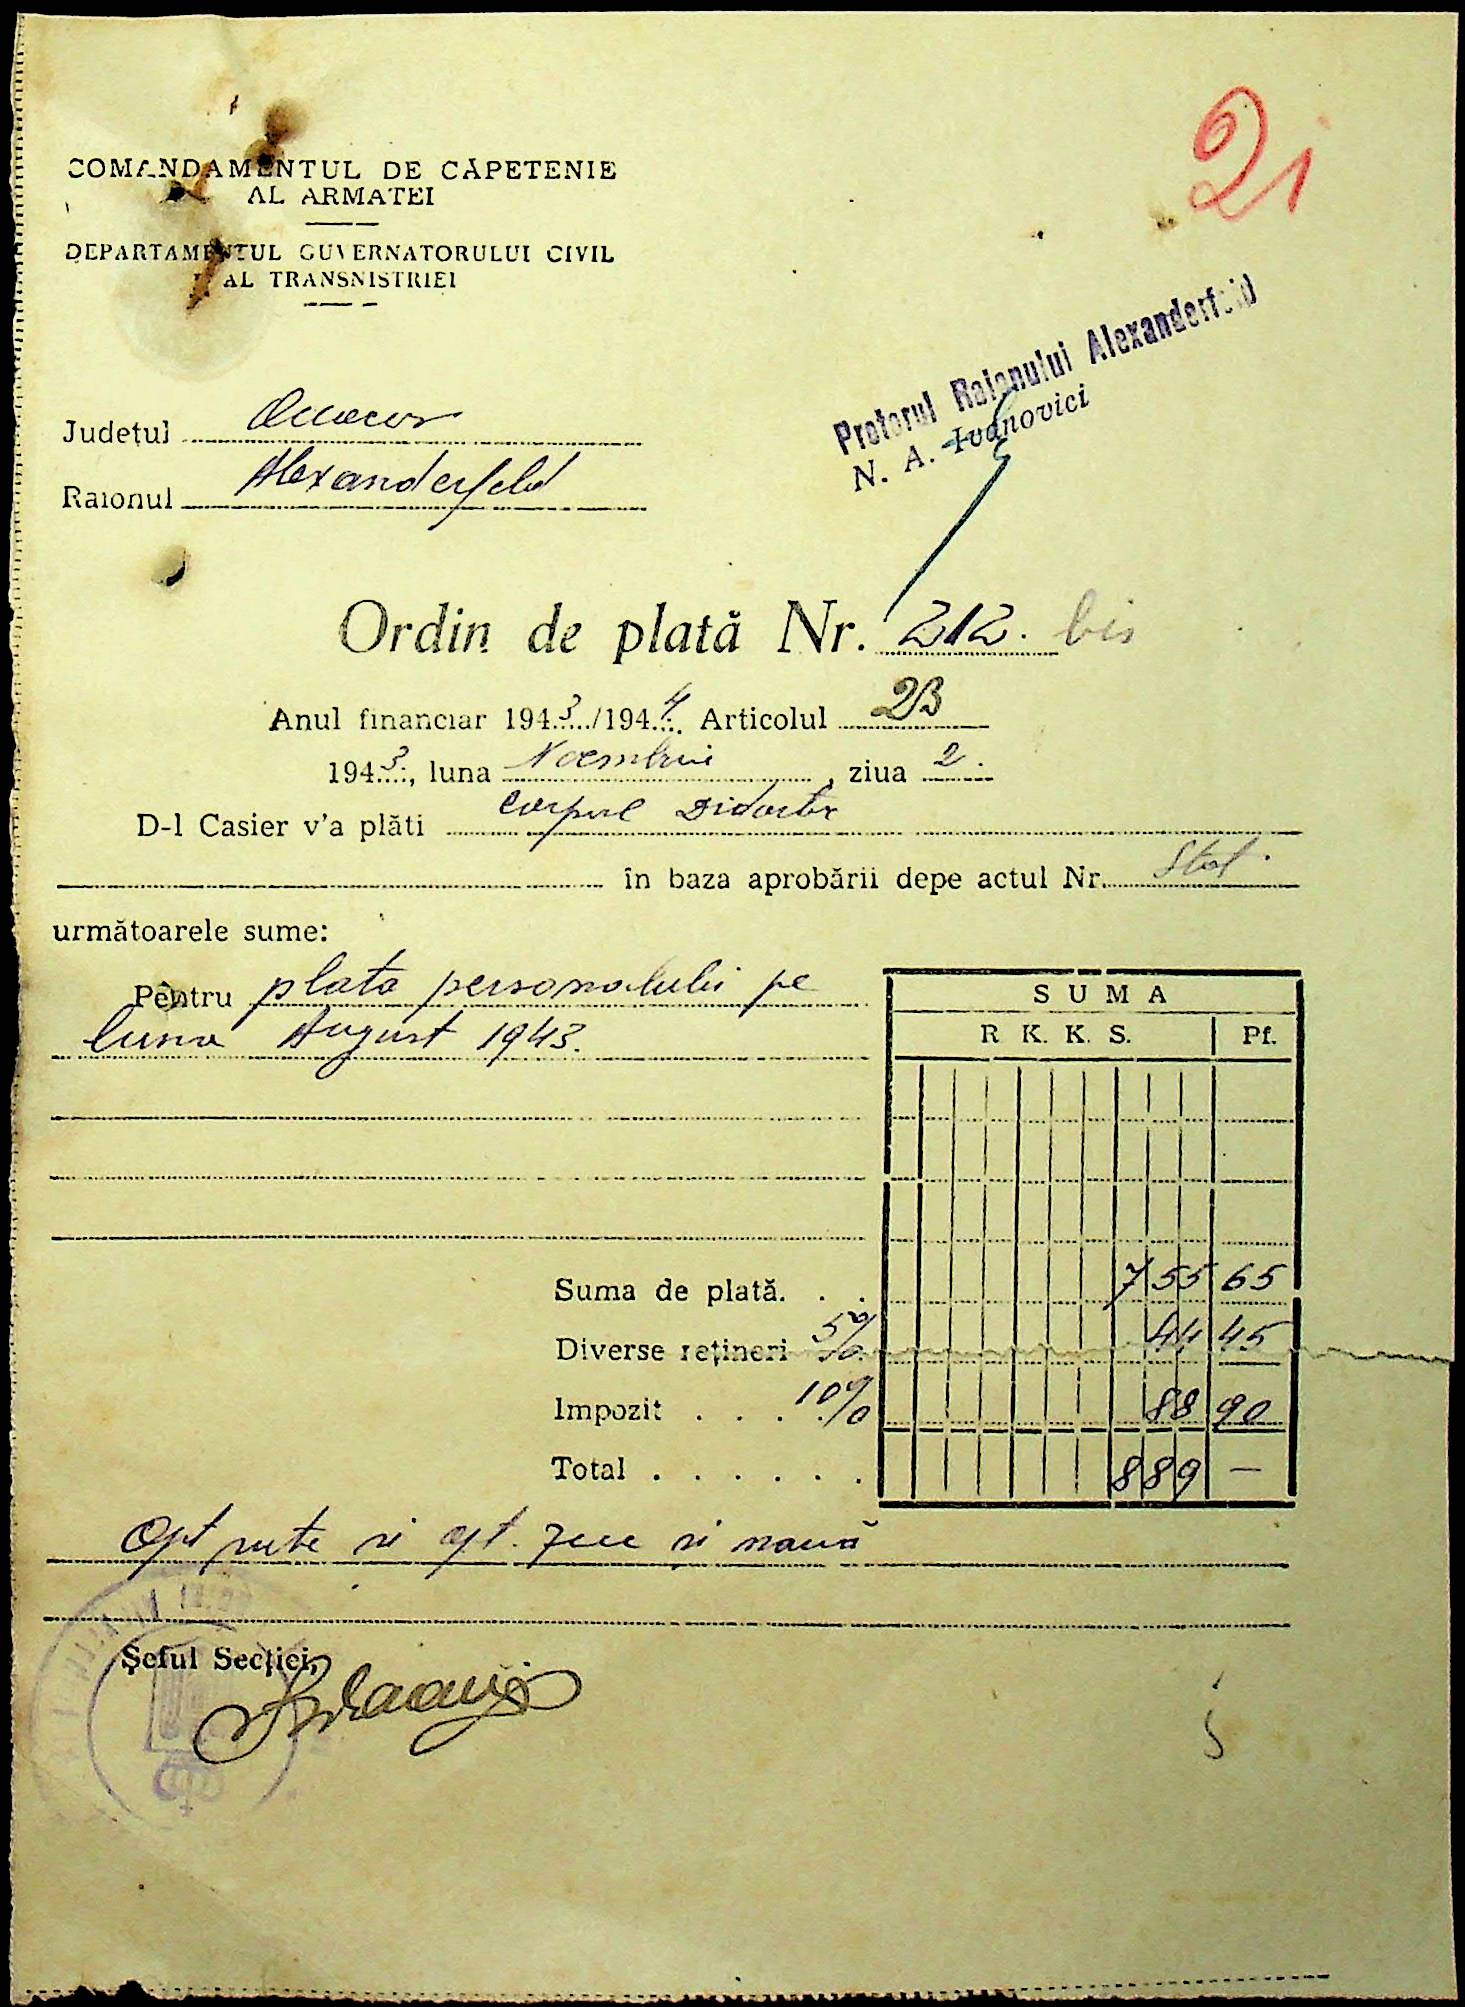 21
COMANDAMENTUL DE CĂPETENIE
AL ARMATEI
DEPARTAMENTUL GUVERNATORULUI CIVIL
AL TRANSNISTRIEI
Pretorul Raionului Alexanderfeld
N. A. Ivanovici
Județul
Raionul Alexanderfeld
Ordin de plată Nr. 212. bis
Anul financiar 1943/1944. Articolul 23
1943, luna Noembrie, ziua 2.
D-l Casier v'a plăti Corpul Didactic
în baza aprobării depe actul Nr. Stat.
următoarele sume:
Pentru plata personalului pe
luna August 1943.
SUMA
R. K. K. S. Pf.
Suma de plată. . . 755 65
Diverse rețineri 5% 44 45
Impozit . . . 10% 88 90
Total . . . . . . 889 —
Opt sute și opt zece și nouă
Șeful Secției,